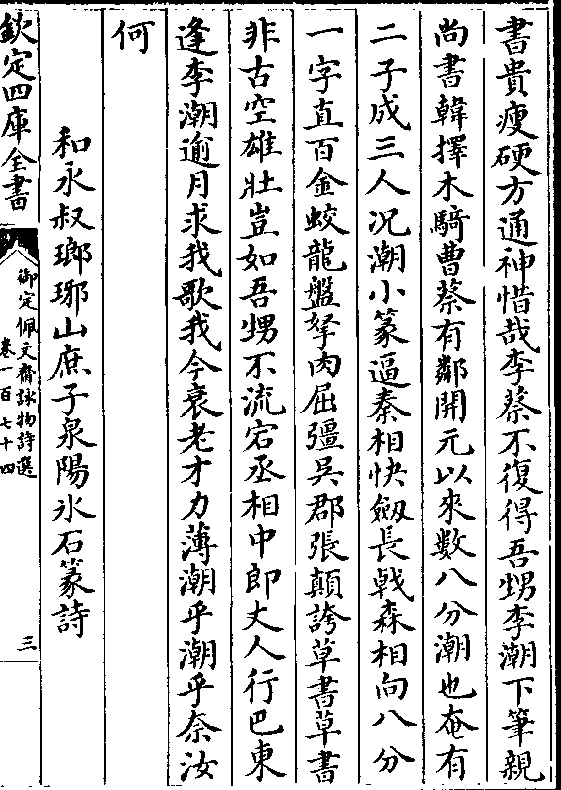 書貴瘦硬方通神惜哉李蔡不復得吾甥李潮下筆親
尚書韓擇木騎曹蔡有鄰開元以來數八分潮也奄有
二子成三人况潮小篆逼秦相快劔長戟森相向八分
一字直百金蛟龍盤拏肉屈彊吳郡張顛誇草書草書
非古空雄壯豈如吾甥不流宕丞相中郎丈人行巴東
逢李潮逾月求我歌我今衰老才力薄潮乎潮乎奈汝
何
和永叔瑯琊山庶子泉陽氷石篆詩
欽定四庫全書
御定佩文齋詠物詩選
卷一百七十四
三